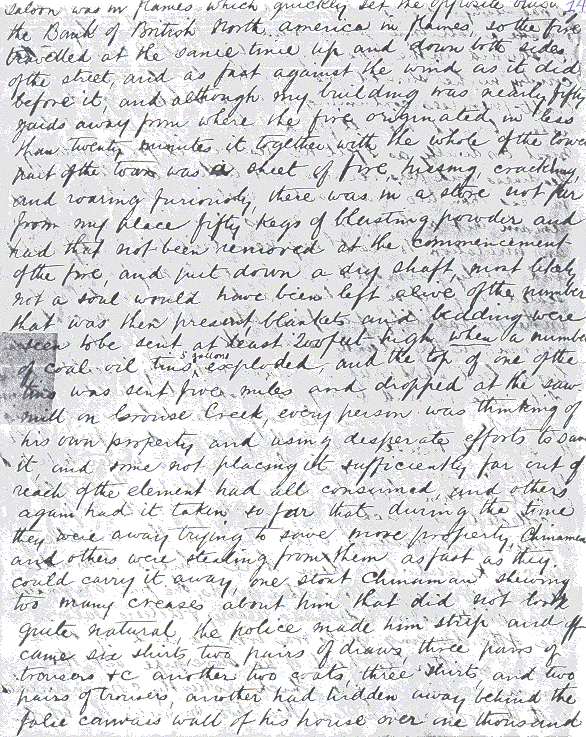 14
saloon was in flames which quickly set the opposite
the Bank of British North america in flames, so the fire
travelled at the same time up and down both sides
of the street and as fast against the wind as it did
before it, and although my building was nearly fifty
yards away from where the fire originated in less
than twenty minutes it together with the whole of the lower
part of the town was a sheet of fire, hissing, crackling
and roaring furiously, there was in a store not far
from my place fifty kegs of blasting powder and
had that not been removed at the commencement
of the fire, and put down a dry shaft, most likely
not a soul would have been left alive of the number
that was then present blankets and bedding were
seen to be sent at least 200 feet high, when a number
of coal oil tins, 5 gallons exploded, and the top of one of the
tins was sent five miles and dropped at the saw
mill on Grouse Creek, every person was thinking of
his own property and using desperate efforts to save
it, and some not placing it sufficiently far out of
reach of the element had all consumed, and others
again had it taken so far that during the time
they were away trying to save more property, Chinamen
and others were stealing from them as fast as they
could carry it away, one stout Chinaman shewing
too many creases about him that did not look
quite natural, the police made him strip and off
came six shirts, two pairs of draws, three pairs of
trousers &c another two coats, three shirts and two
pairs of trousers, another had hidden away behind the
false canvais wall of his house over one thousand